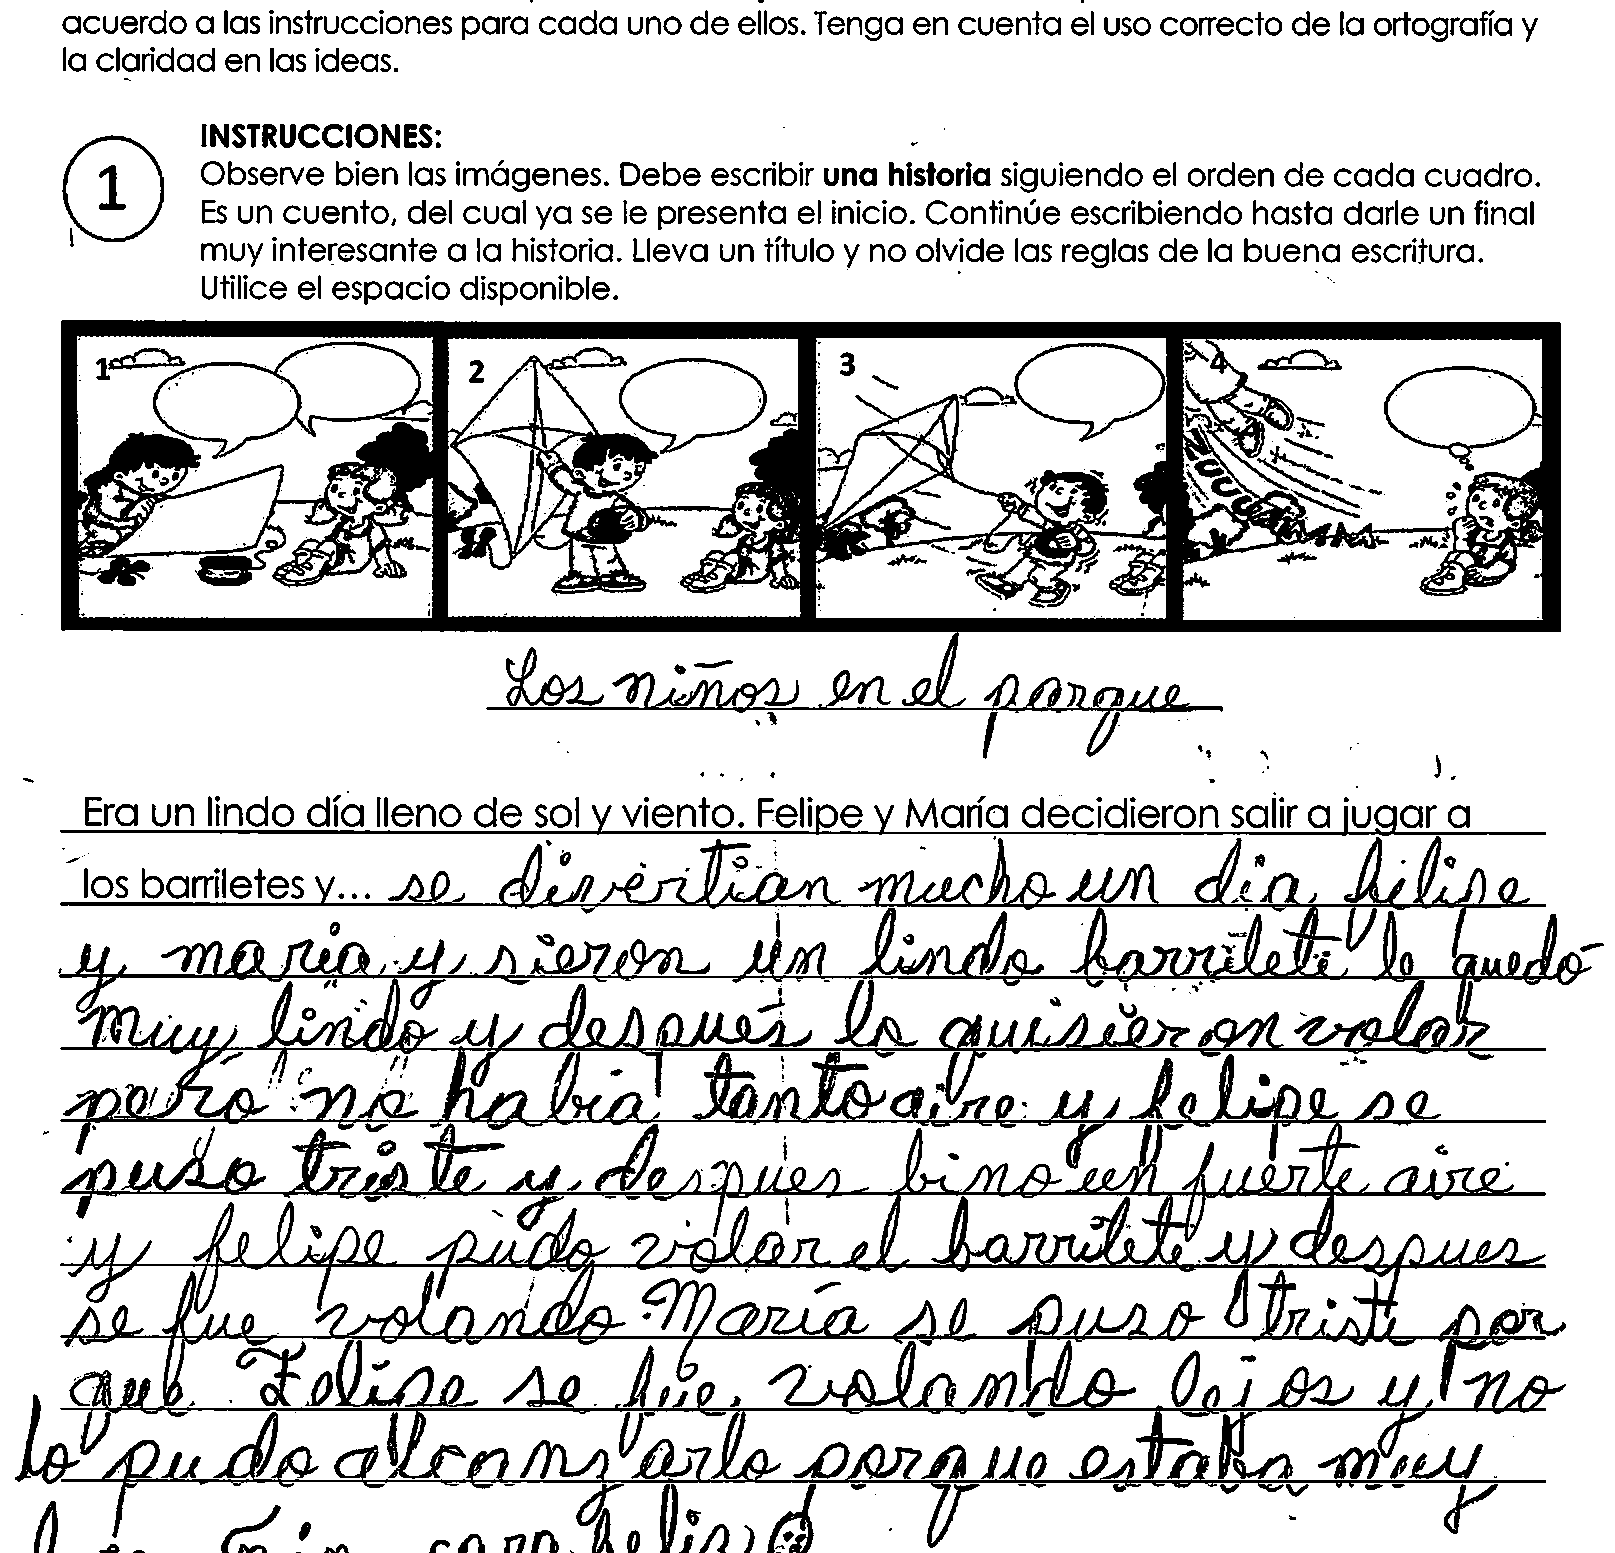 acuerdo a las instrucciones para cada uno de ellos. Tenga en cuenta el uso correcto de la ortografía y
la claridad en las ideas.
1
INSTRUCCIONES:
Observe bien las imágenes. Debe escribir una historia siguiendo el orden de cada cuadro.
Es un cuento, del cual ya se le presenta el inicio. Continúe escribiendo hasta darle un final
muy interesante a la historia. Lleva un título y no olvide las reglas de la buena escritura.
Utilice el espacio disponible.
1 2 3 4
Los niños en el parque
Era un lindo día lleno de sol y viento. Felipe y María decidieron salir a jugar a
los barriletes y... se divertian mucho un dia felipe
y maria y sieron un lindo barrilete le quedó
muy lindo y después lo quisieron volar
pero no habia tanto aire y felipe se
puso triste y despues bino un fuerte aire
y felipe pudo volar el barrilete y despues
se fue volando María se puso triste por
que Felipe se fue volando lejos y no
lo pudo alcanzarlo porque estaba muy